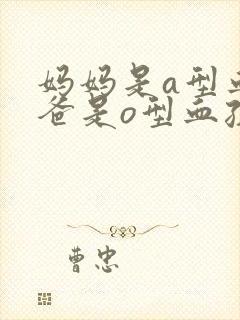 妈妈是a型血
爸是o型血孩
曹忠